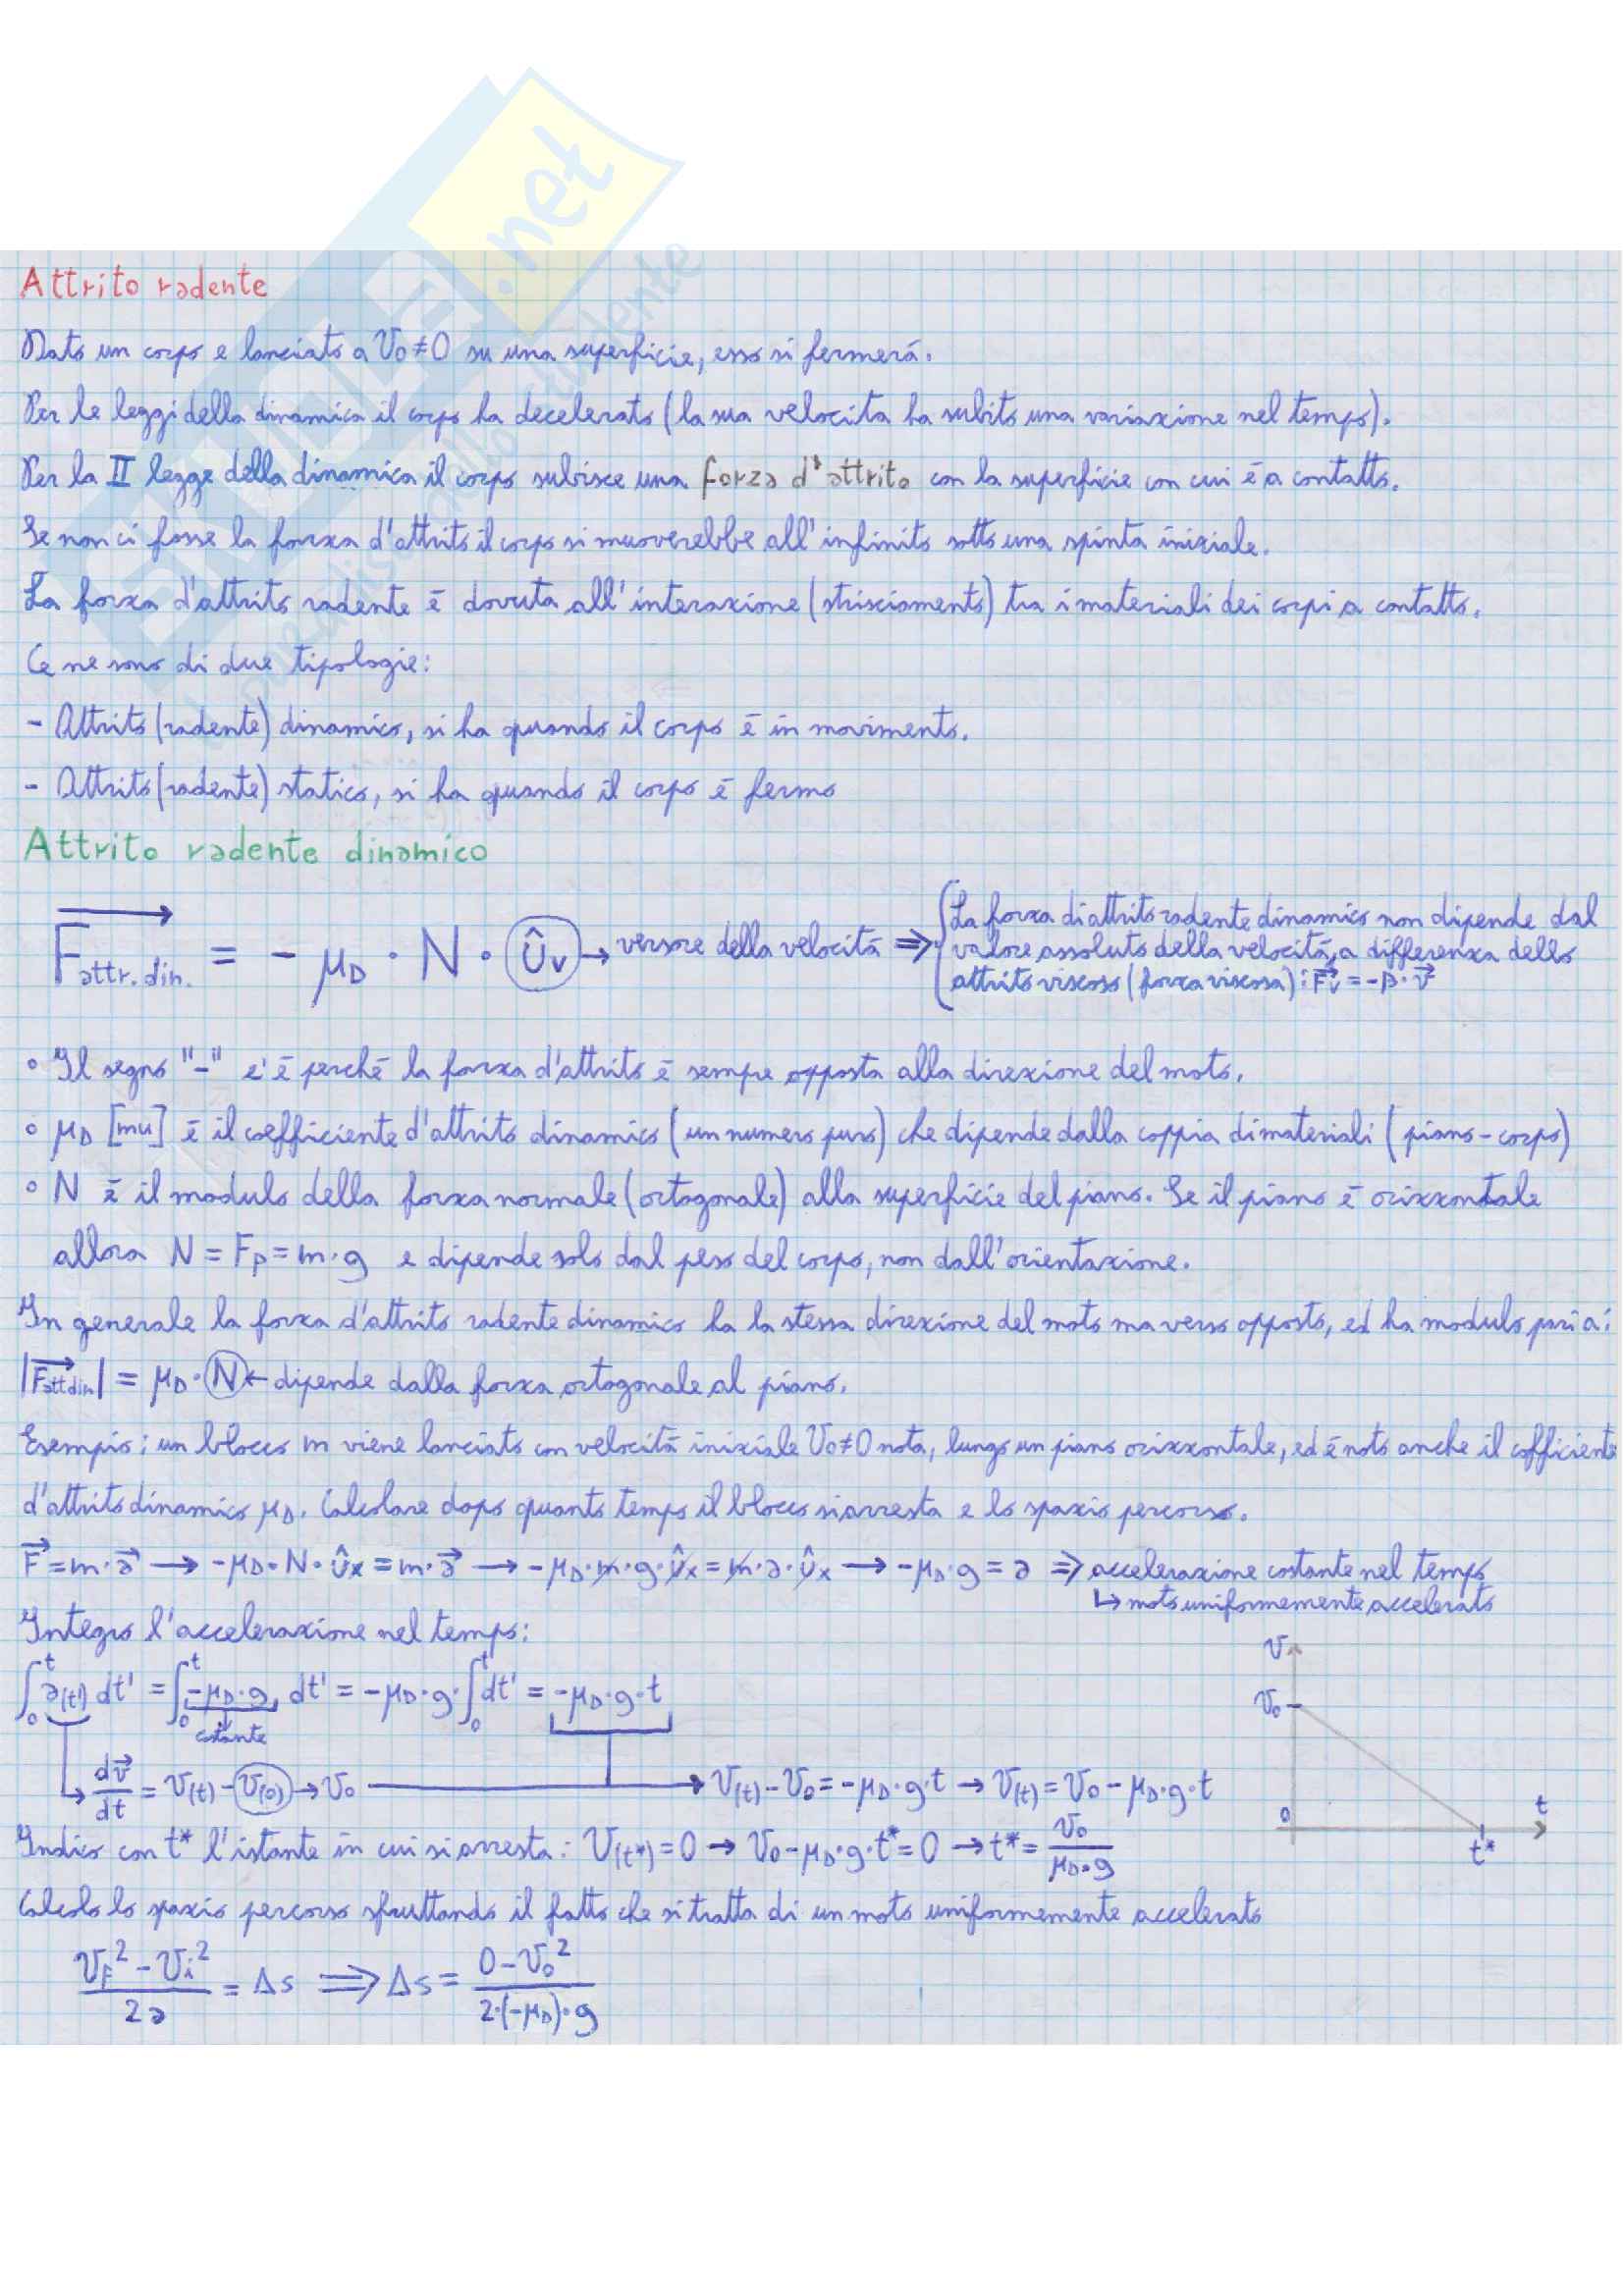 Attrito radente
Dato un corpo e lanciato a V₀≠0 su una superficie, esso si fermerá.
Per le leggi della dinamica il corpo ha decelerato (la sua velocita ha subito una variazione nel tempo).
Per la II legge della dinamica il corpo subisce una forza d'attrito con la superficie con cui é a contatto.
Se non ci fosse la forza d'attrito il corpo si muoverebbe all'infinito sotto una spinta iniziale.
La forza d'attrito radente é dovuta all'interazione (strisciamento) tra i materiali dei corpi a contatto.
Ce ne sono di due tipologie:
- Attrito (radente) dinamico, si ha quando il corpo é in movimento.
- Attrito (radente) statico, si ha quando il corpo é fermo
Attrito radente dinamico
F⃗attr.din. = - μD · N · ûv → versore della velocitá ⇒ { La forza di attrito radente dinamico non dipende dal
valore assoluto della velocitá, a differenza dello
attrito viscoso (forza viscosa): F⃗v = -β·v⃗
° Il segno "-" c'é perché la forza d'attrito é sempre opposta alla direzione del moto.
° μD [mu] é il coefficiente d'attrito dinamico (un numero puro) che dipende dalla coppia di materiali (piano-corpo)
° N é il modulo della forza normale (ortogonale) alla superficie del piano. Se il piano é orizzontale
allora N = Fp = m·g e dipende solo dal peso del corpo, non dall'orientazione.
In generale la forza d'attrito radente dinamico ha la stessa direzione del moto ma verso opposto, ed ha modulo pari a:
|F⃗att din| = μD · N ← dipende dalla forza ortogonale al piano.
Esempio: un blocco m viene lanciato con velocitá iniziale V₀≠0 nota, lungo un piano orizzontale, ed é noto anche il cofficiente
d'attrito dinamico μD. Calcolare dopo quanto tempo il blocco si arresta e lo spazio percorso.
F⃗ = m·a⃗ → -μD·N·ûx = m·a⃗ → -μD·m·g·ûx = m·a·ûx → -μD·g = a ⇒ accelerazione costante nel tempo
↳ moto uniformemente accelerato
Integro l'accelerazione nel tempo:
∫₀ᵗ a(t') dt' = ∫₀ᵗ -μD·g dt' = -μD·g·∫₀ᵗ dt' = -μD·g·t
costante
↳ dv⃗/dt = V(t) - V(0) → V₀ → V(t) - V₀ = -μD·g·t → V(t) = V₀ - μD·g·t
Indico con t* l'istante in cui si arresta: V(t*) = 0 → V₀ - μD·g·t* = 0 → t* = V₀/μD·g
V
V₀
0
t
t*
Calcolo lo spazio percorso sfruttando il fatto che si tratta di un moto uniformemente accelerato
(VF² - Vi²)/2a = Δs ⟹ Δs = (0 - V₀²)/2·(-μD)·g
.net